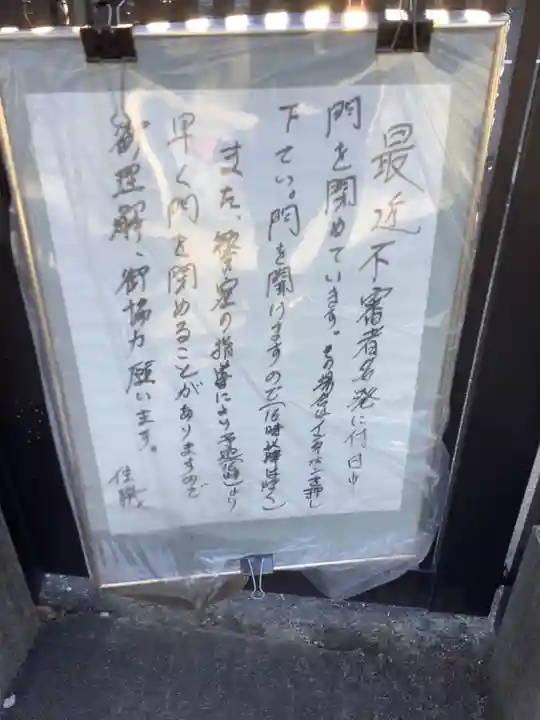 最近不審者多発に付日中
門を閉めています。その場合はインターホン押し
下さい。門を開けますので(16時以降は除く)
また、警察の指導により予定(16時)より
早く門を閉めることがありますので
御理解、御協力願います。
住職